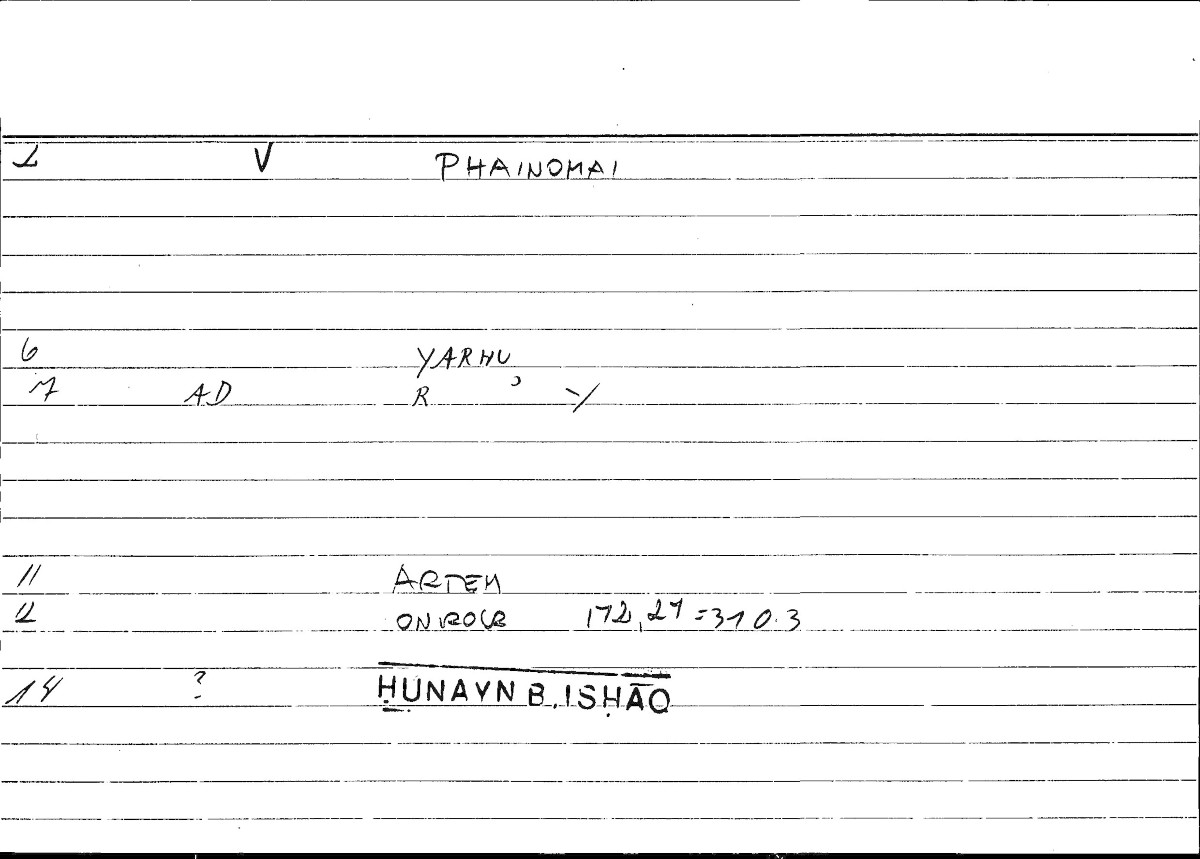 1 V PHAINOMAI
6 YARHU
7 AD R ʾ -y
11 ARTEM
12 ONIROCR 172,21=310.3
14 ? ḤUNAYN B. ISḤĀQ